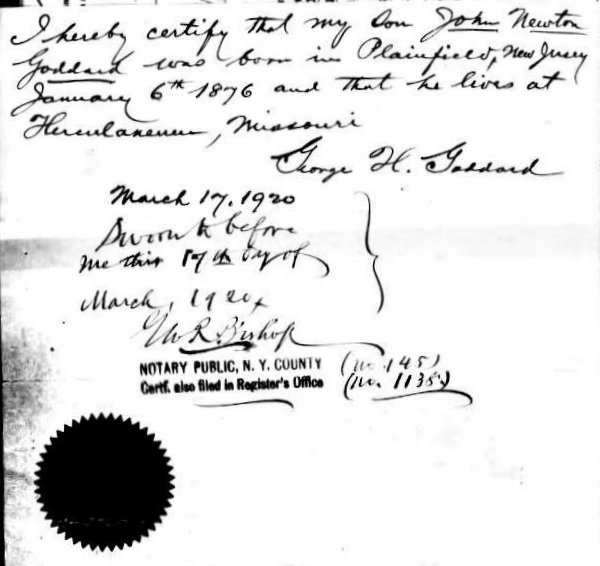 I hereby certify that my son John Newton
Goddard was born in Plainfield, New Jersey
January 6th 1876 and that he lives at
Herculaneum, Missouri
George H. Goddard
March 17, 1920
Sworn to before
me this 17th day of
March, 1920
R. Bishop
NOTARY PUBLIC, N. Y. COUNTY
Certf. also filed in Register's Office
(No. 145)
(No. 1135)